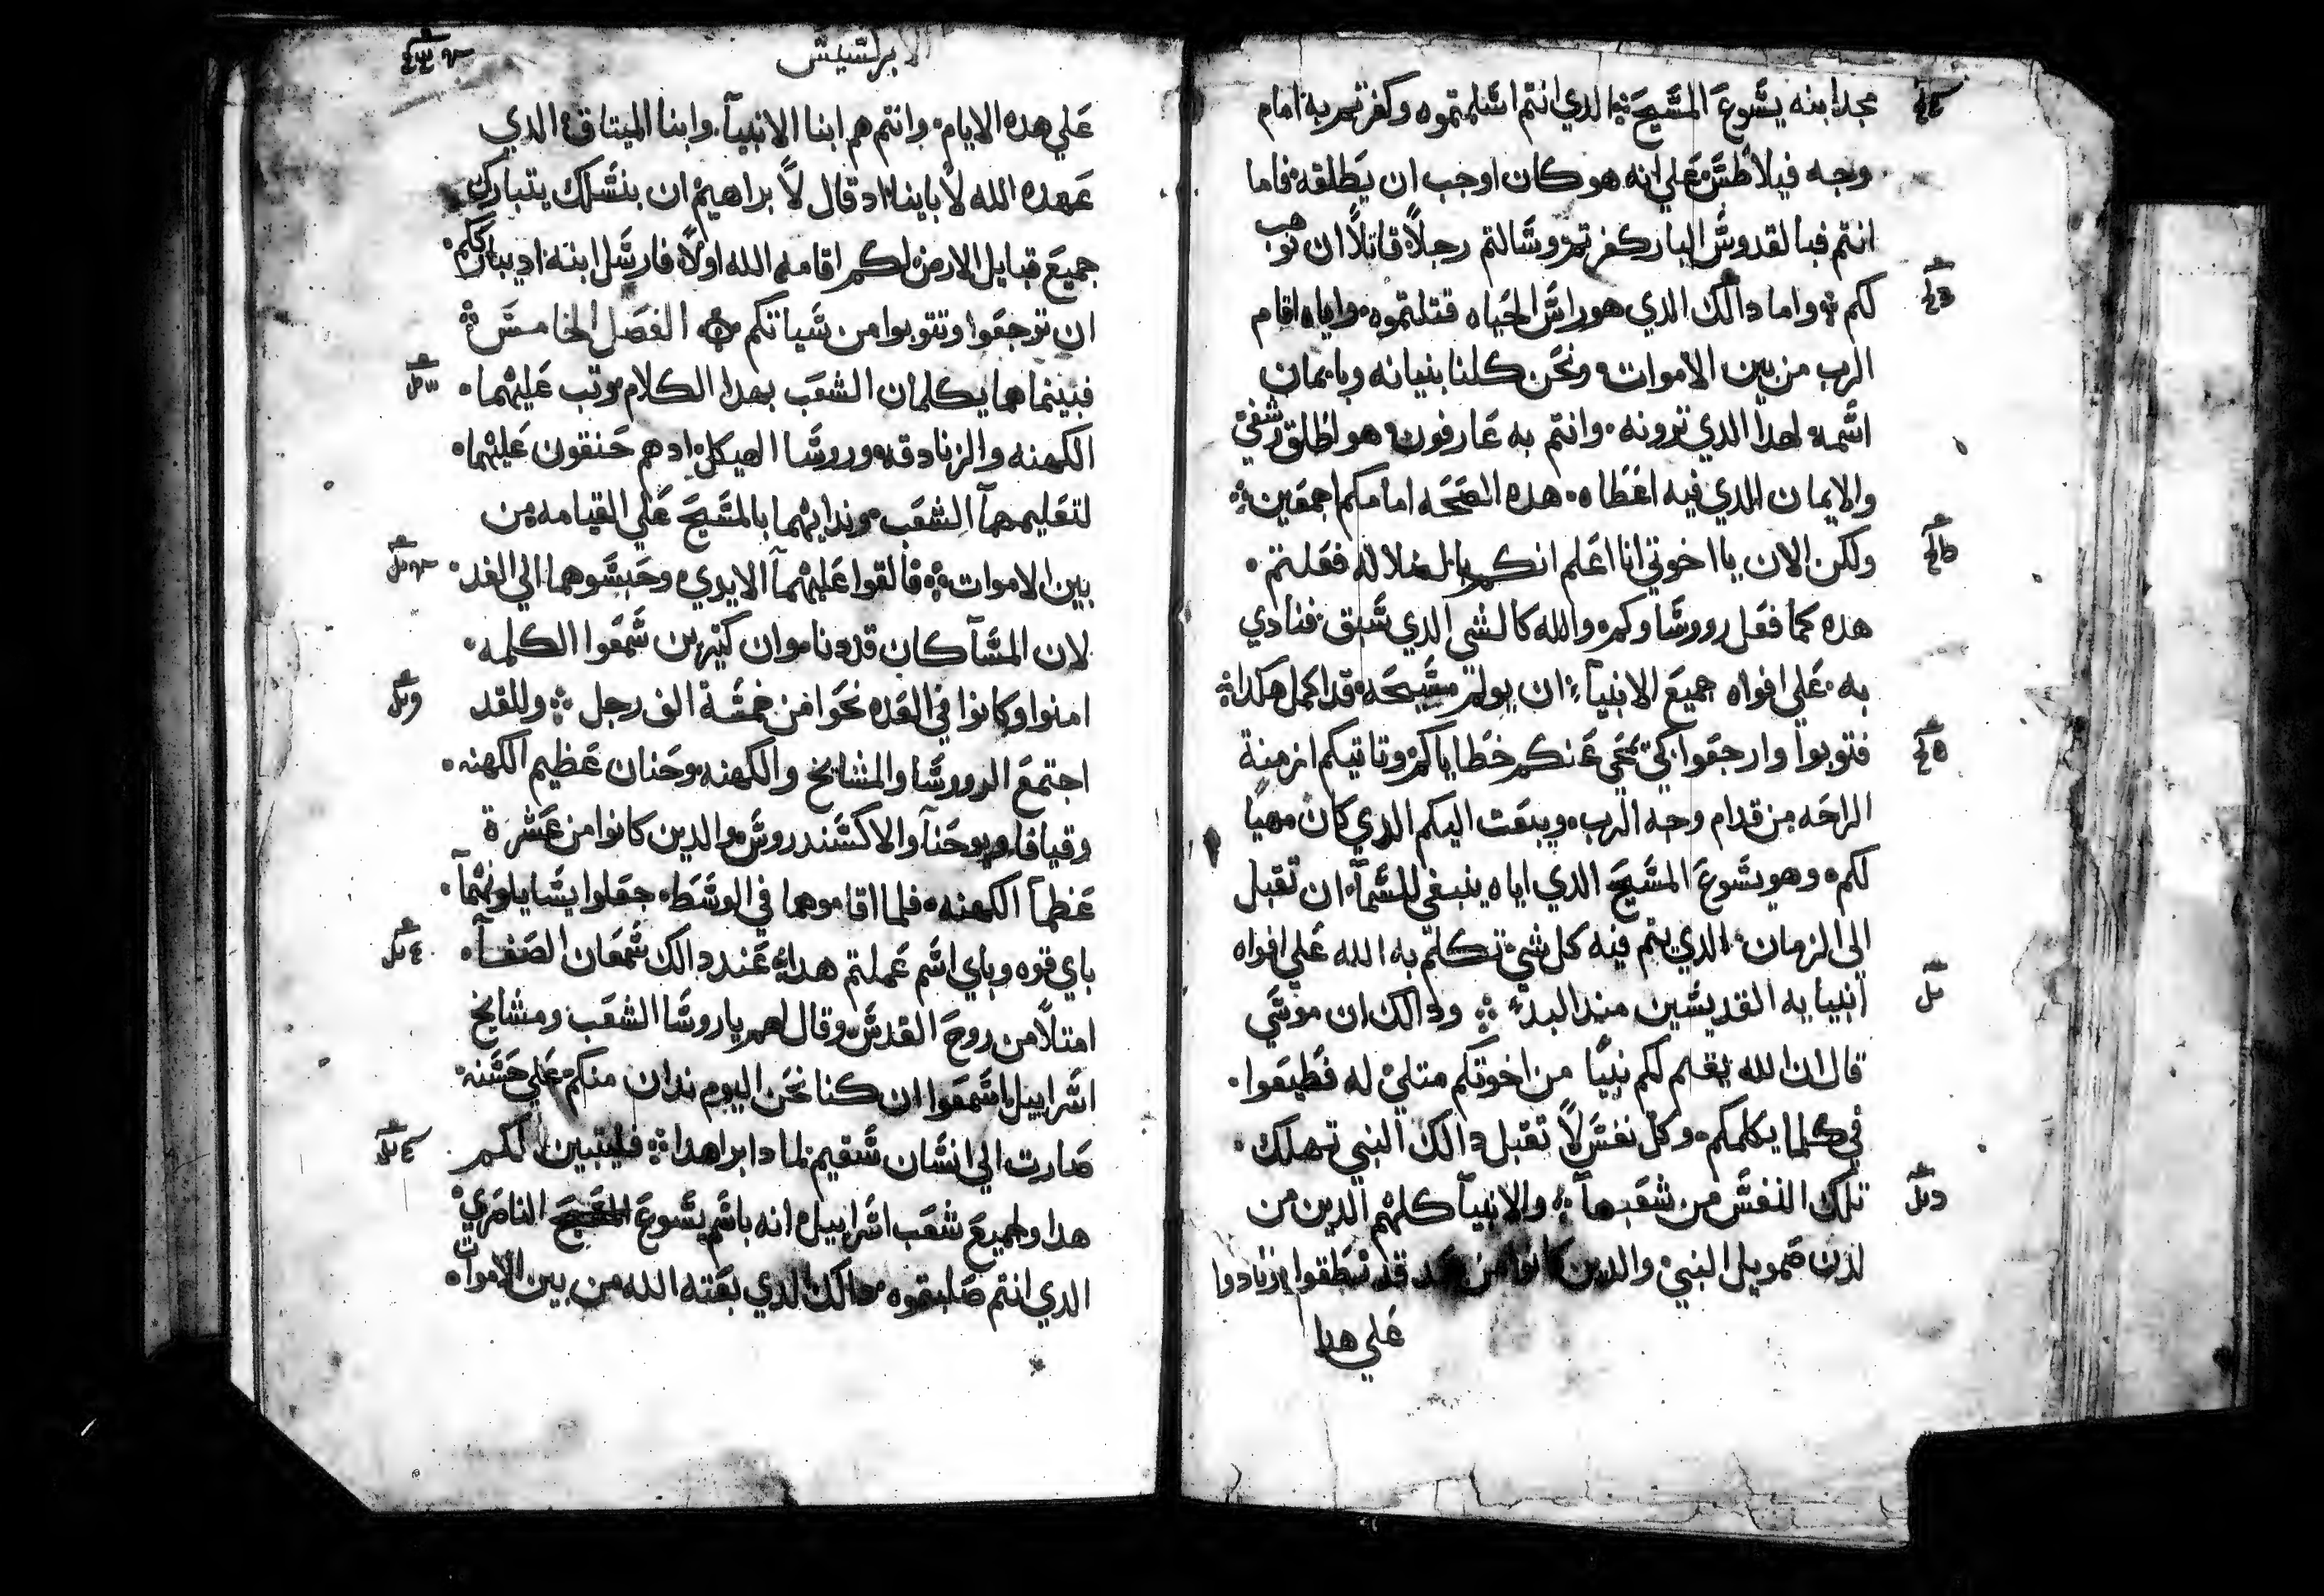 مجد ابنه يشوع المشيح الدي انتم اشلمتموه وكفرتم به امام
وجه فيلاطش علي انه هو كان اوجب ان يطلقه فاما
انتم فبالقدوش البار كفرتم وشالتم رجلاً قاتلاً ان توهب
لكم واما دالك الدي هو راش الحياه قتلتموه واياه اقام
الرب من بين الاموات ونحن كلنا بنيانه وبايمان
اشمه لهدا الدي ترونه وانتم به عارفون هو اطلق وشفي
والايمان الدي فيه اعطاه هده الصحه امامكم اجمعين
ولكن الان يا اخوتي انا اعلم انكم بالضلاله فعلتم
هده كما فعل رووشاوكم والله كالشي الدي شبق فنادي
به علي افواه جميع الانبيآء ان يولم مشيحه قد اكمل هكدا
فتوبوا وارجعوا كي تمحي عنكم خطاياكم وتاتيكم ازمنة
الراحه من قدام وجه الرب ويبعت اليكم الدي كان مهيا
لكم وهو يشوع المشيح الدي اياه ينبغي للشمآ ان تقبل
الي الزمان الدي يتم فيه كل شي تكلم به الله علي افواه
انبيايه القديشين مند البدء ودالك ان موشي
قال ان الله يقيم لكم نبيًا من اخوتكم متلي له فطيعوا
في كلما يكلمكم وكل نفش لا تقبل دالك النبي تهلك
تلك النفش من شعبها والانبيآ كلهم الدين من
لدن صمويل النبي والدين كانوا من بعد قد نطقوا ونادوا
علي هدا
الابركشيش
علي هده الايام وانتم هم ابنا الانبيآ وابنا الميتاق الدي
عهده الله لاباينا اد قال لابراهيم ان بنشلك يتبارك
جميع قبايل الارض لكم اقامه الله اولاً فارشل ابنه اد يبارككم
ان توجعوا وتتوبوا من شياتكم الفصل الخامش
فبينما هما يكلمان الشعب بهدا الكلام وتب عليهما
الكهنه والزنادقه وروشا الهيكل ادهم حنقون عليهما
لتعليمهمآ الشعب وندايهما بالمشيح علي القيامه من
بين الاموات فالقوا عليهمآ الايدي وحبشوهما الي الغد
لان المشآ كان قد دنا وان كتيرين شمعوا الكلمه
امنوا وكانوا في العده نحوا من خمشة الف رجل وللغد
اجتمع الرووشا والمشايخ والكهنه وحنان عظيم الكهنه
وقيافا ويوحنآ والاكشندروش والدين كانوا من عشرة
عظمآ الكهنه فلما اقاموهما في الوشط جعلوا يشايلونهمآ
باي قوه وباي اشم عملتم هدا عند دالك شمعان الصفآ
امتلا من روح القدش وقال لهم يا روشا الشعب ومشايخ
اشراييل اشمعوا ان كنا نحن اليوم ندان منكم علي حشنه
صارت الي انشان شقيم بما دا برا هدا فليتبين لكم
هدا ولجميع شعب اشراييل انه باشم يشوع المشيح الناصري
الدي انتم صلبتموه دالك الدي بعته الله من بين الاموات